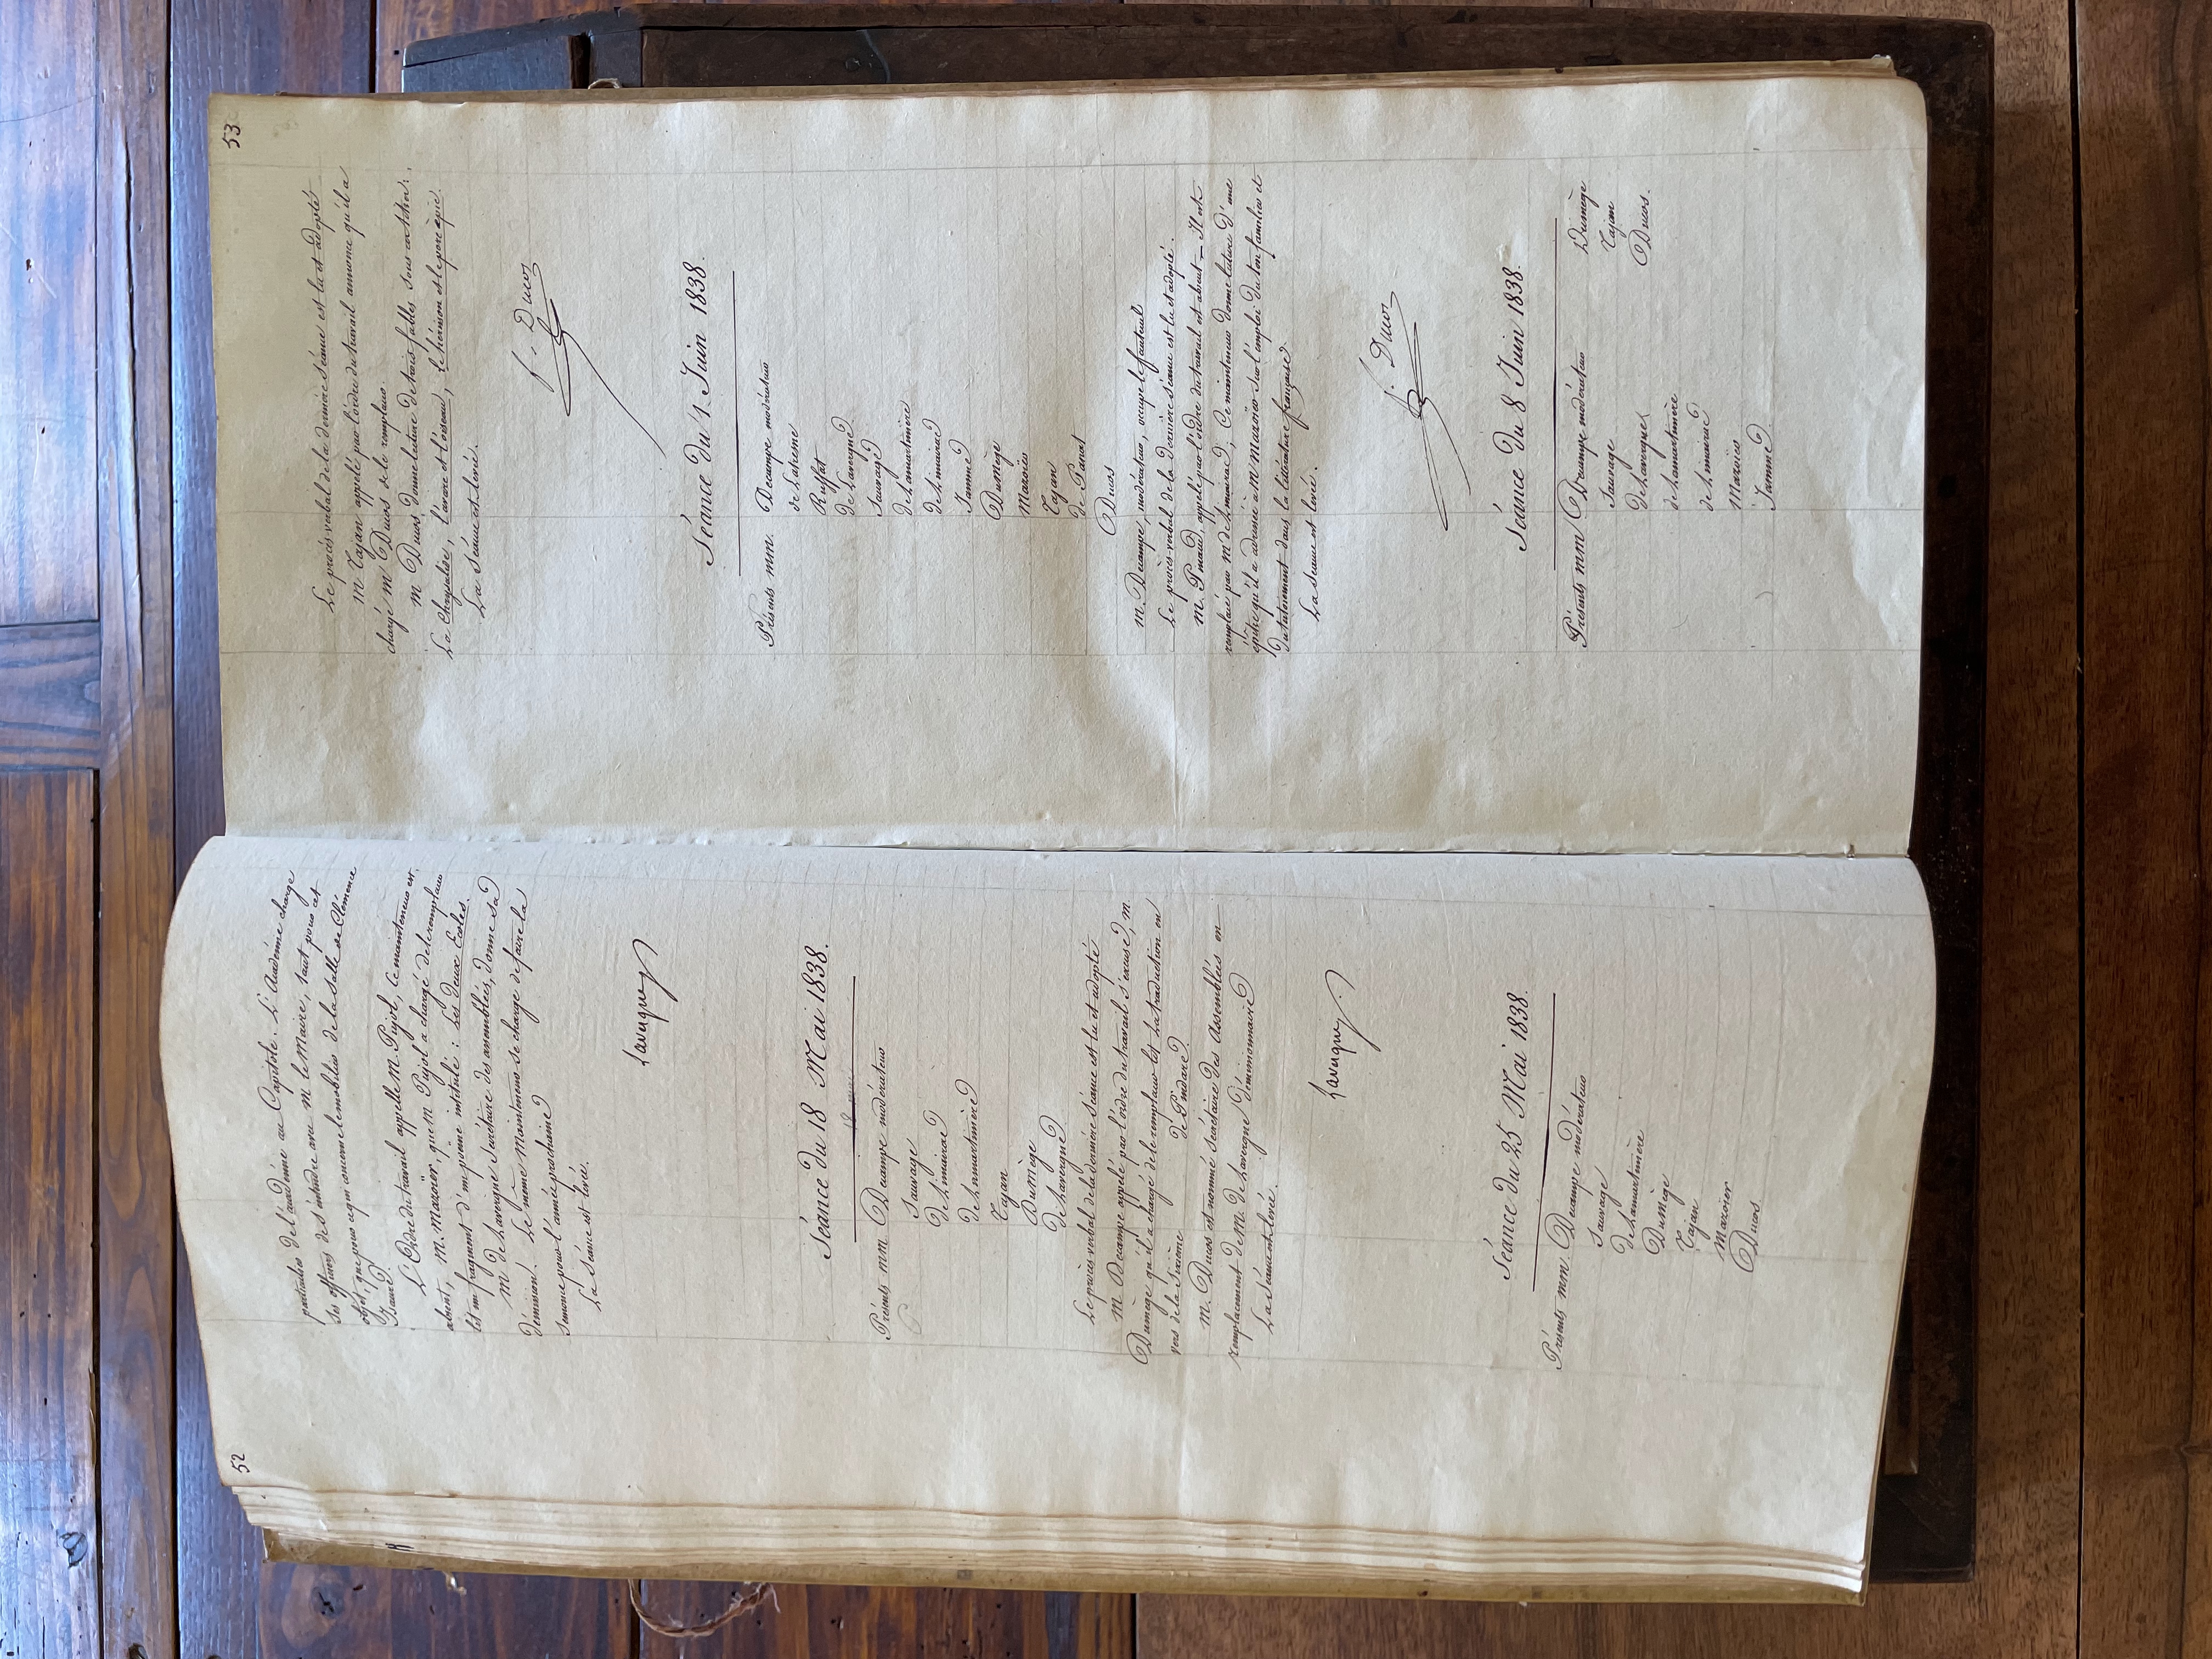 52
particulier de l'académie au Capitole. L'Académie charge
ses officiers de s'entendre avec M. le Maire, tant pour cet
objet, que pour ce qui concerne le mobilier de la Salle de Clémence
Isaure.
L'Ordre du travail appelle M. Pujol, ce mainteneur est
absent, M. Mazoïer, que M. Pujol a chargé de le remplacer
lit un fragment d'un poème intitulé : Les deux Ecoles.
M de Lavergne Secrétaire des assemblées, donne sa
démission. Le même Mainteneur se charge de faire la
semonce pour l'année prochaine
La Séance est levée.
Lavergne
Séance du 18 Mai 1838.
Présents mm Decampe modérateur
Sauvage
de Limairac
de Lamartinère
Tajan
Dumège
de Lavergne
Le procès verbal de la dernière séance est lu et adopté
M Decampe appelé par l'ordre du travail s'excuse, M
Dumège qu'il a chargé de le remplacer lit la traduction en
vers de la sixième de Pindare
M. Ducos est nommé secrétaire des Assemblées en
remplacement de M. de Lavergne démissionnaire
La Séance est levée.
Lavergne
Séance du 25 Mai 1838.
Présents mm. Decampe modérateur
Sauvage
de Lamartinière
Dumège
Tajan
Mazoïer
Ducos
53
Le procès verbal de la dernière séance est lu et adopté
M Tajan appelé par l'ordre du travail annonce qu'il a
chargé M Ducos de le remplacer.
M Ducos donne lecture de trois fables sous ce titre :
La Chrysalide, l'avare et l'oiseau, le hérisson et le porc épic.
La Séance est levée.
f. Ducos
Séance du 1. Juin 1838.
Présents mm. Decampe modérateur
de Lahrene
Ruffat
de Lavergne
Sauvage
de Lamartinière
de Limairac
Jamme
Dumège
Mazoïer
Tajan
de Panat
Ducos
M. Decampe, modérateur, occupe le fauteuil
Le procès-verbal de la dernière séance est lu et adopté.
M. Pinaud, appelé par l'ordre du travail est absent — Il est
remplacé par M de Limairac, Ce mainteneur donne lecture d'une
épitre qu'il a adressée à M Mazoïer sur l'emploi du ton familier et
du tutoiement dans la littérature française
La séance est levée.
f. Ducos
Séance du 8 Juin 1838.
Présents mm Decampe modérateur
Sauvage
de Lavergne
de Lamartinière
de Limairac
Mazoïer
Jamme
Dumège
Tajan
Ducos.